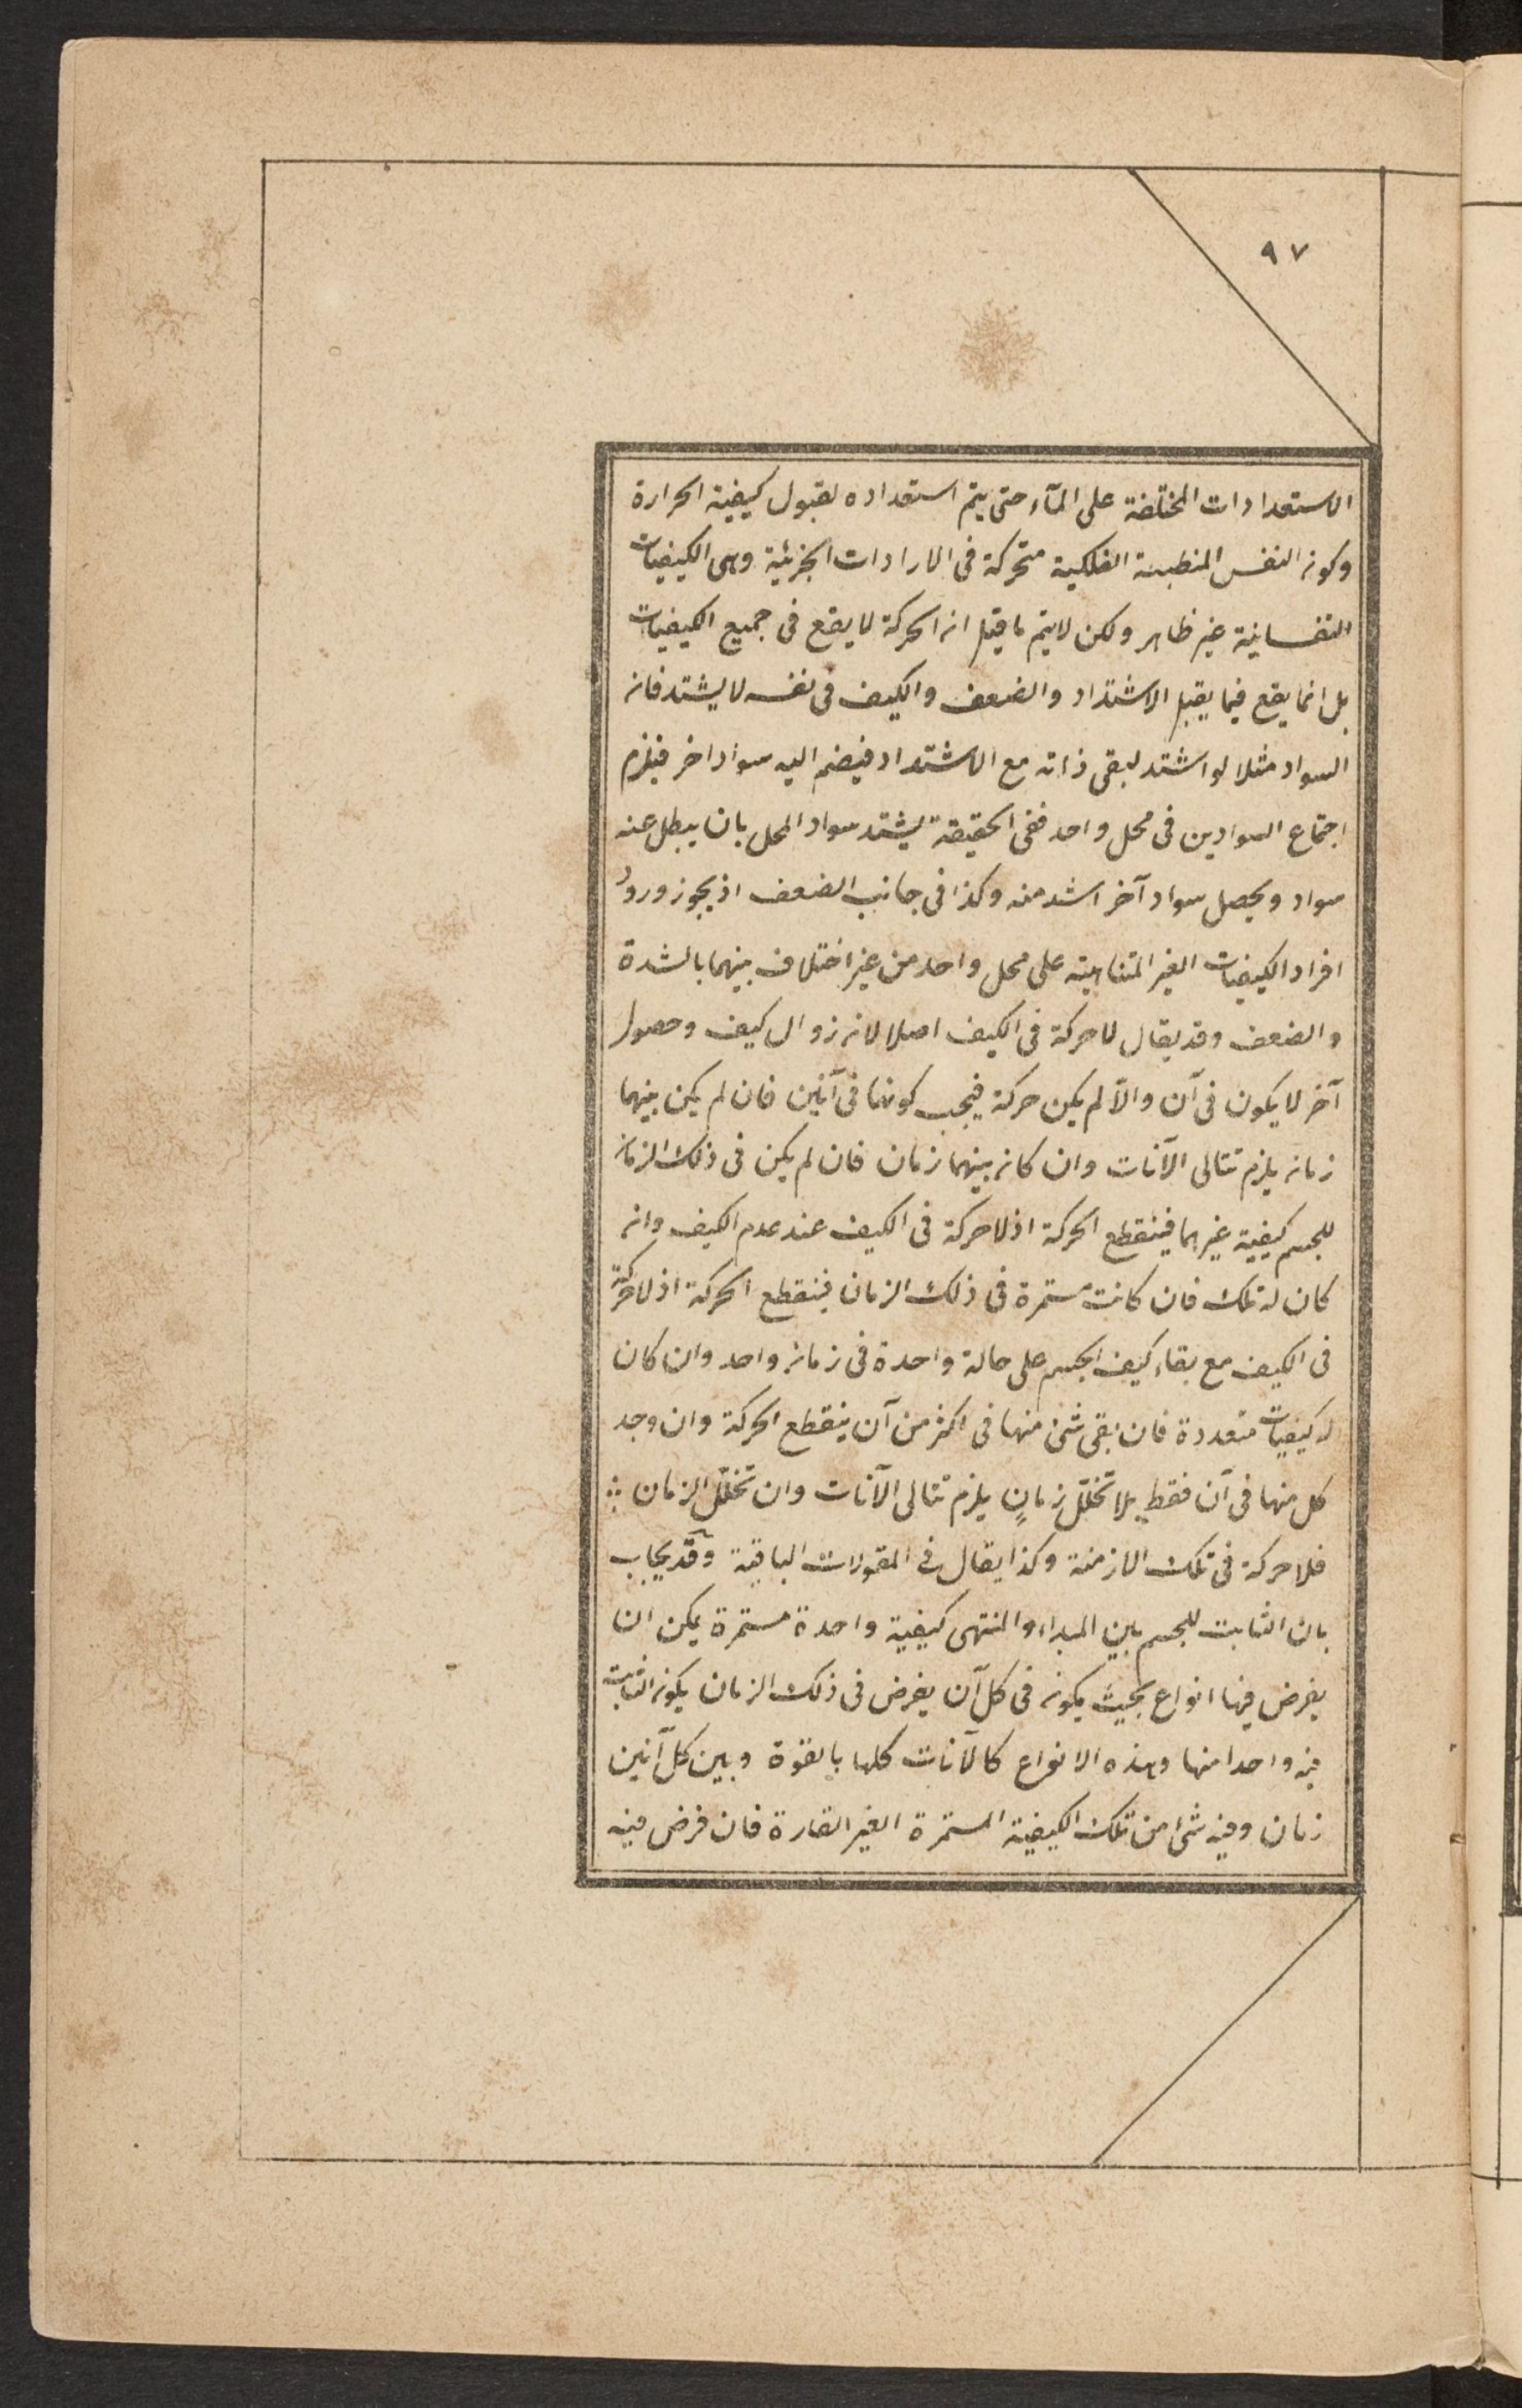 ٩٧
الاستعدادات المختلفة على المآء حتى يتم استعداده لقبول كيفية الحرارة
وكون النفس المنطبعة الفلكية متحركة فى الارادات الجزئية وهى الكيفيات
النفسانية غير ظاهر ولكن لا يتم ما قيل ان الحركة لا يقع فى جميع الكيفيات
بل انما يقع فيما يقبل الاشتداد والضعف والكيف فى نفسه لا يشتد فان
السواد مثلا لو اشتد لبقى ذاته مع الاشتداد فيضم اليه سواد اخر فيلزم
اجتماع السوادين فى محل واحد ففى الحقيقة يشتد سواد المحل بان يبطل عنه
سواد ويحصل سواد آخر اشد منه وكذا فى جانب الضعف اذ يجوز ورود
افراد الكيفيات الغير المتناهية على محل واحد من غير اختلاف بينهما بالشدة
والضعف وقد يقال لا حركة فى الكيف اصلا لان زوال كيف وحصول
آخر لا يكون فى آن والّا لم يكن حركة فيجب كونهما فى آنين فان لم يكن بينهما
زمان يلزم تتالى الآنات وان كان بينهما زمان فان لم يكن فى ذلك الزمان
للجسم كيفية غيرهما فينقطع الحركة اذ لا حركة فى الكيف عند عدم الكيف وان
كان له تلك فان كانت مستمرة فى ذلك الزمان فينقطع الحركة اذ لا حركة
فى الكيف مع بقاء كيف الجسم على حالة واحدة فى زمان واحد وان كان
له كيفيات متعددة فان بقى شئ منها فى اكثر من آن ينقطع الحركة وان وجد
كل منها فى آن فقط بلا تخلّل زمانٍ يلزم تتالى الآنات وان تخلّل الزمان
فلا حركة فى تلك الازمنة وكذا يقال فى المقولات الباقية وقد يجاب
بان الثابت للجسم بين المبداء والمنتهى كيفية واحدة مستمرة يمكن ان
يفرض فيها انواع بحيث يكون فى كل آن يفرض فى ذلك الزمان يكون الثابت
فيه واحدا منها وهذه الانواع كالآنات كلها بالقوة وبين كل آنين
زمان وفيه شئ من تلك الكيفية المستمرة الغير القارة فان فرض فيه